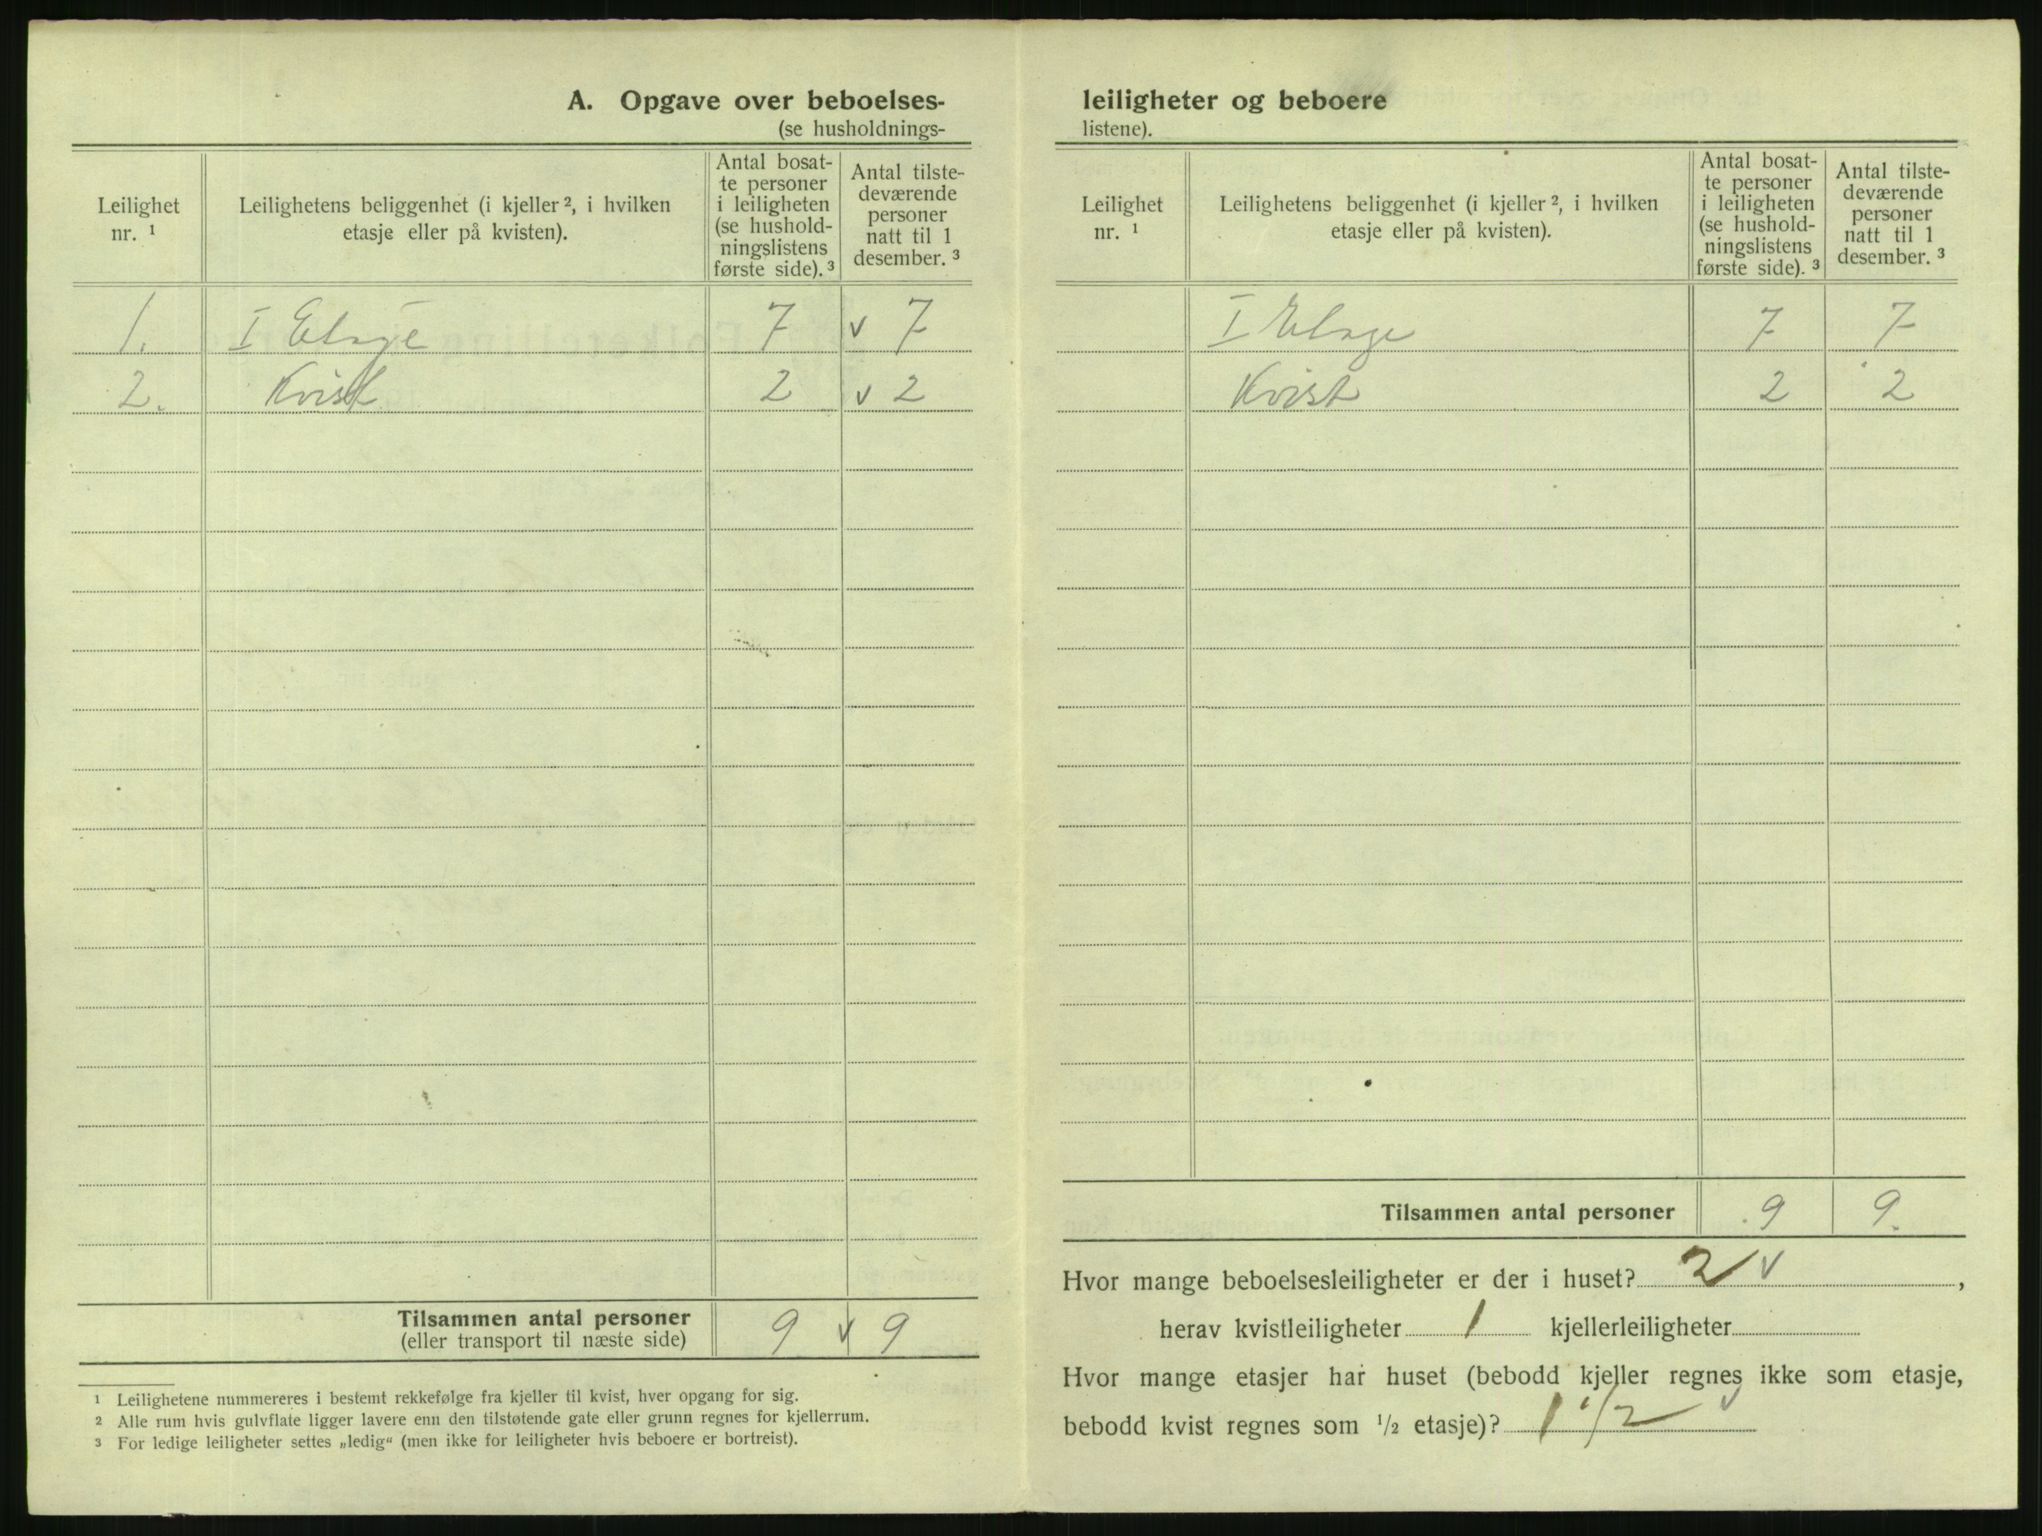 A. Opgave over beboelses-
(se husholdnings-
Leilighet
nr. ¹
Leilighetens beliggenhet (i kjeller ², i hvilken
etasje eller på kvisten).
Antal bosat-
te personer
i leiligheten
(se hushold-
ningslistens
første side). ³
Antal tilste-
deværende
personer
natt til 1
desember. ³
1. I Etage 7 v 7
2. Kvist 2 v 2
Tilsammen antal personer 9 v 9
(eller transport til næste side)
¹ Leilighetene nummereres i bestemt rekkefølge fra kjeller til kvist, hver opgang for sig.
² Alle rum hvis gulvflate ligger lavere enn den tilstøtende gate eller grunn regnes for kjellerrum.
³ For ledige leiligheter settes „ledig“ (men ikke for leiligheter hvis beboere er bortreist).
leiligheter og beboere
listene).
Leilighet
nr. ¹
Leilighetens beliggenhet (i kjeller ², i hvilken
etasje eller på kvisten).
Antal bosat-
te personer
i leiligheten
(se hushold-
ningslistens
første side). ³
Antal tilste-
deværende
personer
natt til 1
desember. ³
I Etage 7 7
Kvist 2 2
Tilsammen antal personer 9 9.
Hvor mange beboelsesleiligheter er der i huset? 2 v,
herav kvistleiligheter 1 kjellerleiligheter
Hvor mange etasjer har huset (bebodd kjeller regnes ikke som etasje,
bebodd kvist regnes som ½ etasje)? 1 1/2 v